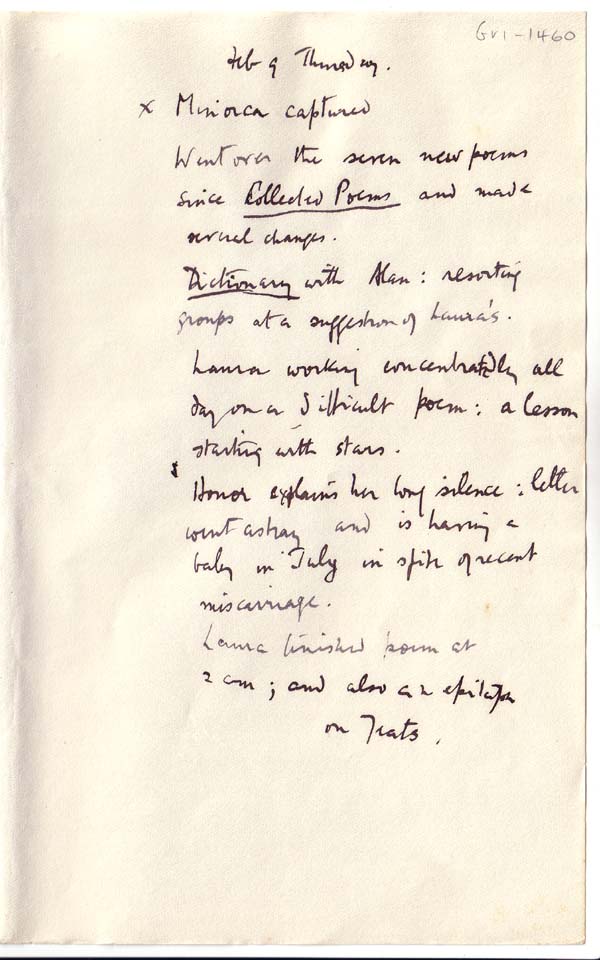 GV1-1460
Feb 9 Thursday.
x Minorca captured
Went over the seven new poems
since Collected Poems and made
several changes.
Dictionary with Alan: resorting
groups at a suggestion of Laura's.
Laura working concentratedly all
day on a difficult poem: a lesson
starting with stars.
Honor explains her long silence: letter
went astray and is having a
baby in July in spite of recent
miscarriage.
Laura finished poem at
2 am; and also an epitaph
on Yeats.